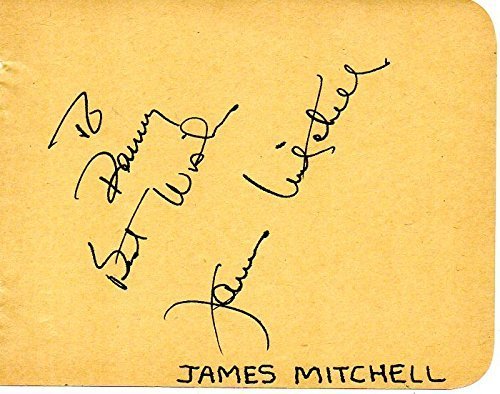 To
Danny
Best Wishes
James Mitchell
JAMES MITCHELL